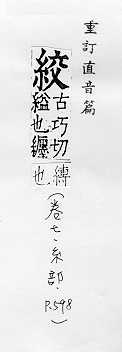 重訂直音篇
絞
古巧切
縊也纏
縛
也
(卷七·糸部.
P.598)